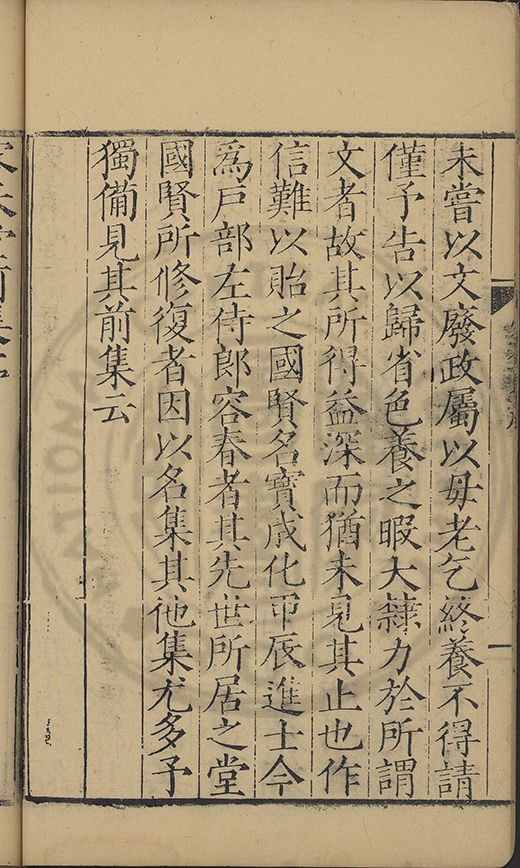 未嘗以文廢政屬以母老乞終養不得請
僅予告以歸省色養之暇大肆力於所謂
文者故其所得益深而猶未見其止也作
信難以貽之國賢名寶成化甲辰進士今
爲戸部左侍郎容春者其先世所居之堂
國賢所修復者因以名集其他集尤多予
獨備見其前集云